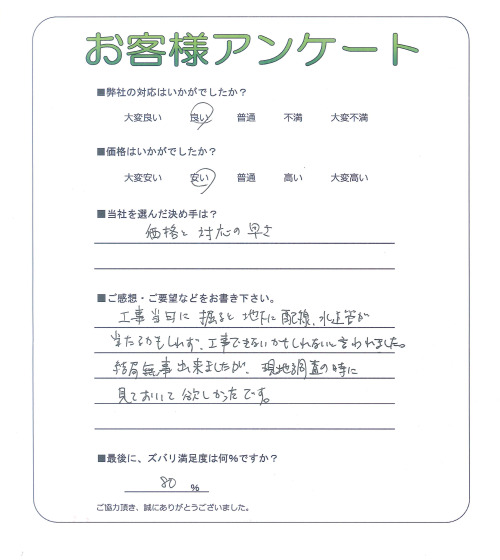 お客様アンケート
■弊社の対応はいかがでしたか？
大変良い 良い 普通 不満 大変不満
■価格はいかがでしたか？
大変安い 安い 普通 高い 大変高い
■当社を選んだ決め手は？
価格と対応の早さ
■ご感想・ご要望などをお書き下さい。
工事当日に掘ると地下に配線、水道管が
当たるかもしれず、工事できないかもしれないと言われました。
結局無事出来ましたが、現地調査の時に
見ておいて欲しかったです。
■最後に、ズバリ満足度は何%ですか？
80 %
ご協力頂き、誠にありがとうございました。